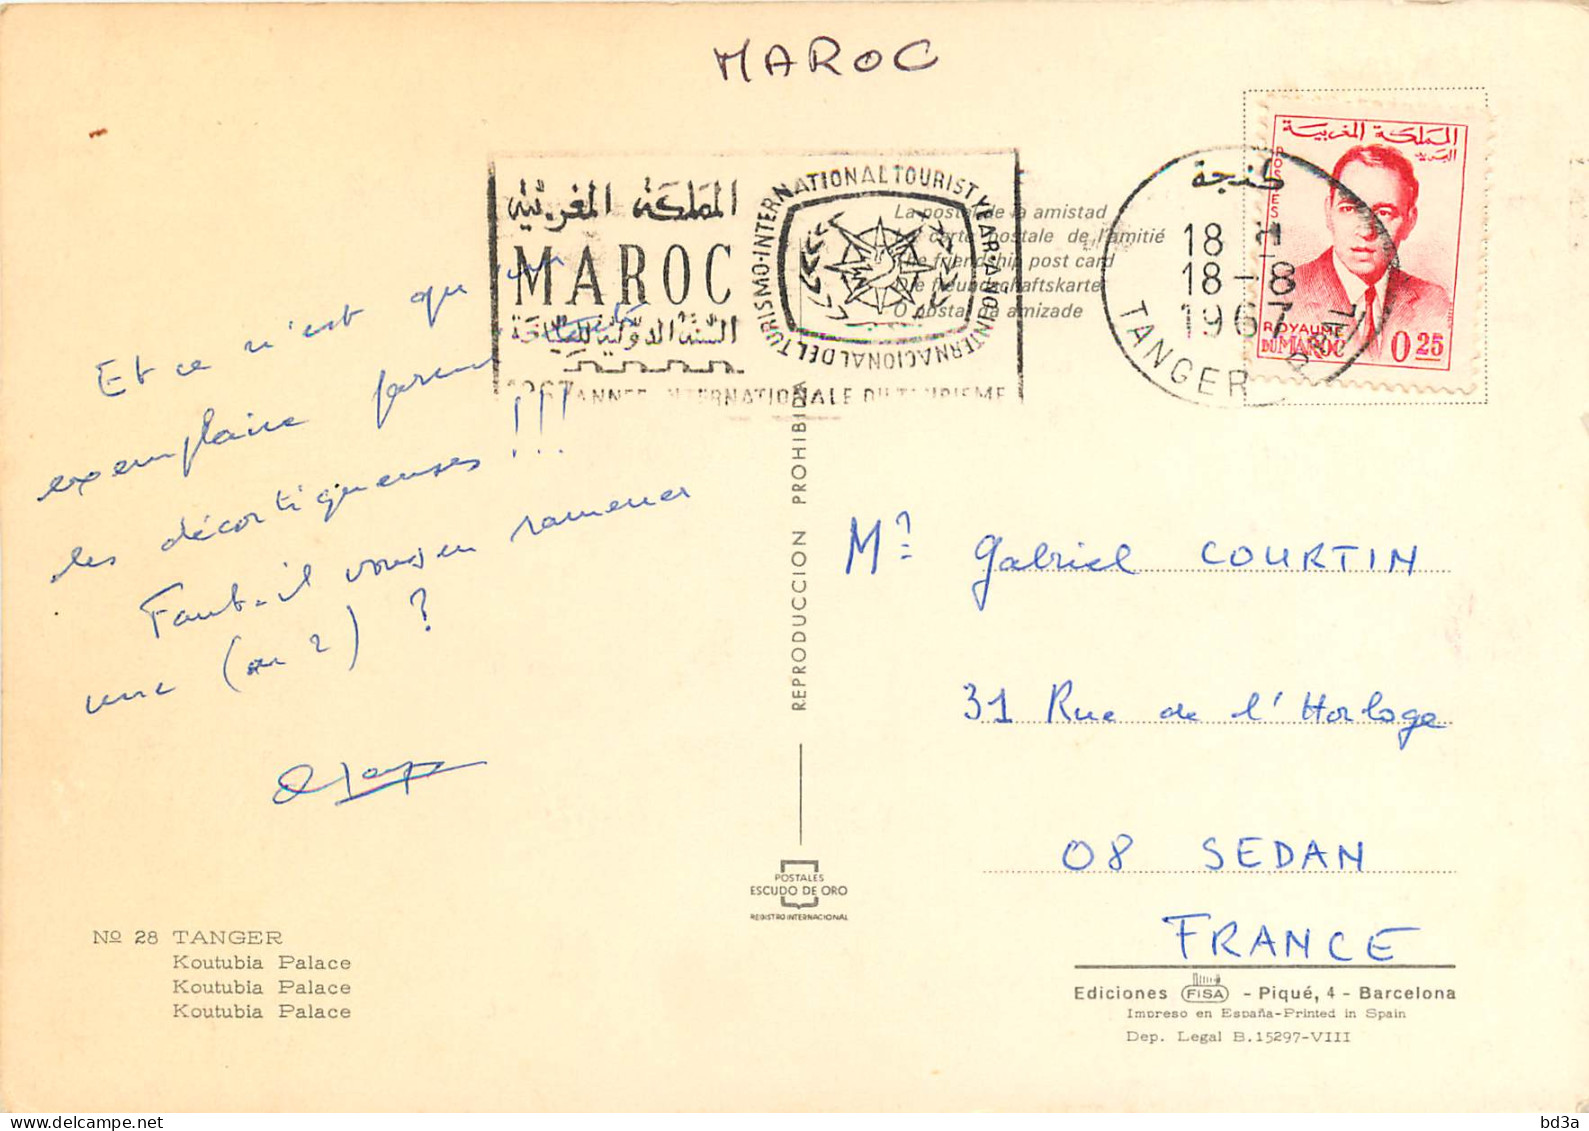 MAROC
المملكة المغربية
MAROC
السنة الدولية للسياحة
1967 ANNEE INTERNATIONALE DU TOURISME
INTERNATIONAL TOURIST YEAR - ANO INTERNACIONAL DEL TURISMO -
La postal de la amistad
La carte postale de l'amitié
The friendship post card
Die freundschaftskarte
O postal da amizade
طنجة
18 H
18-8
1967
TANGER
المملكة المغربية
البريد
POSTES
ROYAUME
DU MAROC
0.25
Et ce n'est qu'un
exemplaire parmi
les décortiqueuses !!!
Faut-il vous en ramener
une (ou 2) ?
REPRODUCCION PROHIBIDA
Mr Gabriel COURTIN
31 Rue de l'Horloge
08 SEDAN
FRANCE
POSTALES
ESCUDO DE ORO
REGISTRO INTERNACIONAL
Nº 28 TANGER
Koutubia Palace
Koutubia Palace
Koutubia Palace
Ediciones FISA - Piqué, 4 - Barcelona
Impreso en España-Printed in Spain
Dep. Legal B.15297-VIII
bd3a